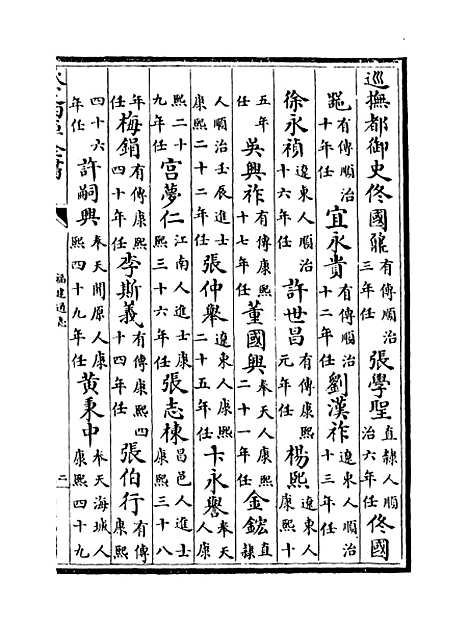 巡撫都御史佟國鼐有傳順治三年任張學聖直隸人順治六年任佟國
噐有傳順治十年任宜永貴有傳順治十二年任劉漢祚遼東人順治十三年任
徐永禎遼東人順治十六年任許世昌有傳康熙元年任楊熙遼東人康熙十
五年任吳興祚有傳康熙十七年任董國興奉天人康熙二十一年任金鋐直隸
人順治壬辰進士康熙二十二年任張仲舉遼東人康熙二十五年任卞永譽奉天人康
熙二十九年任宮夢仁江南人進士康熙三十六年任張志棟昌邑人進士康熙三十八
年任梅鋗有傳康熙四十年任李斯義有傳康熙四十四年任張伯行有傳康熙
四十六年任許嗣興奉天開原人康熙四十九年任黃秉中奉天海城人康熙四十九
福建通志
二